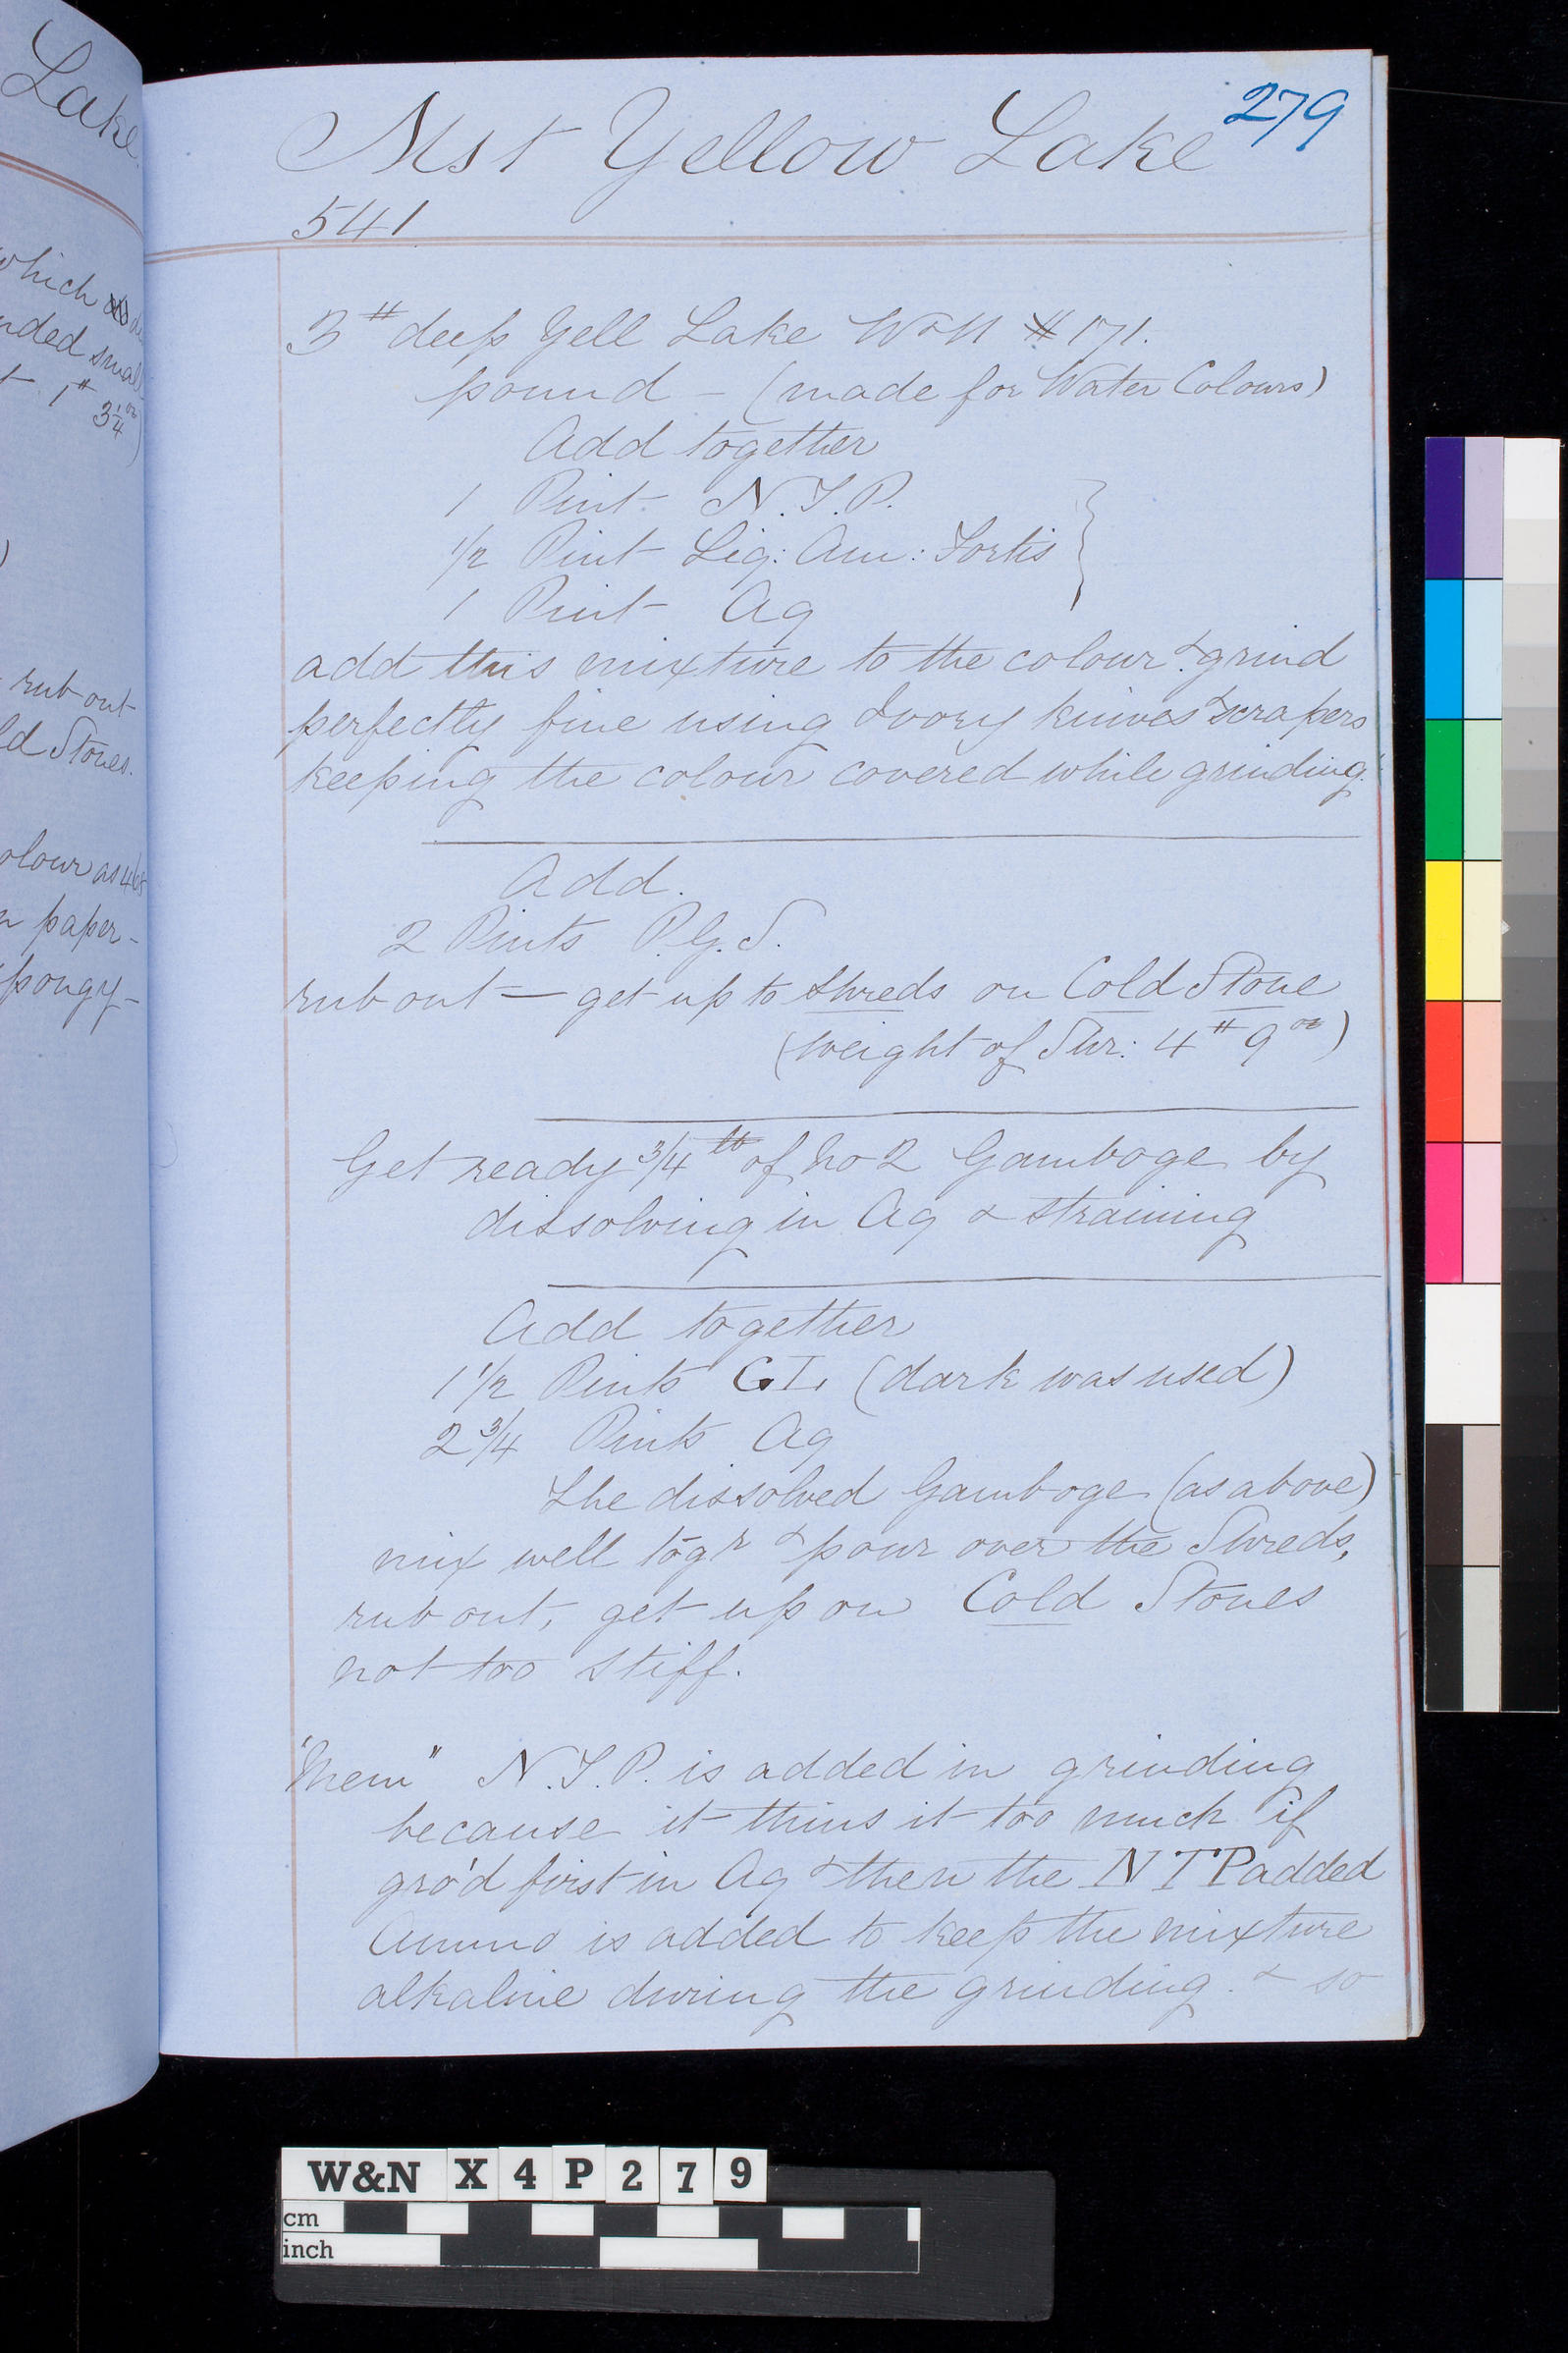 Lake.
which
nded smal
1# 3¼ oz)
)
rub out
ld Stones.
olour as 465
n paper -
spongy -
279
Mst Yellow Lake
541
3# deep Yell Lake WoN # 171.
pound - (made for Water Colours)
Add together
1 Pint. N.T.P.
1/2 Pint Liq: Am: Fortis
1 Pint Aq
add this mixture to the colour & grind
perfectly fine using Ivory knives & scrapers
keeping the colour covered while grinding.
Add.
2 Pints P.G.S.
rub out — get up to shreds on Cold Stone
(weight of Shr: 4# 9oz)
Get ready 3/4 lb of No 2 Gamboge by
dissolving in Aq & straining
Add together
1 1/2 Pints G.T. (dark was used)
2 3/4 Pints Aq
The dissolved Gamboge (as above)
mix well togr & pour over the Shreds,
rub out, get up on Cold Stones
not too stiff.
"Mem" N.T.P. is added in grinding
because it thins it too much if
gro'd first in Aq & then the NTP added
Ammo is added to keep the mixture
alkaline during the grinding. & so
W&N X4P279
cm
inch